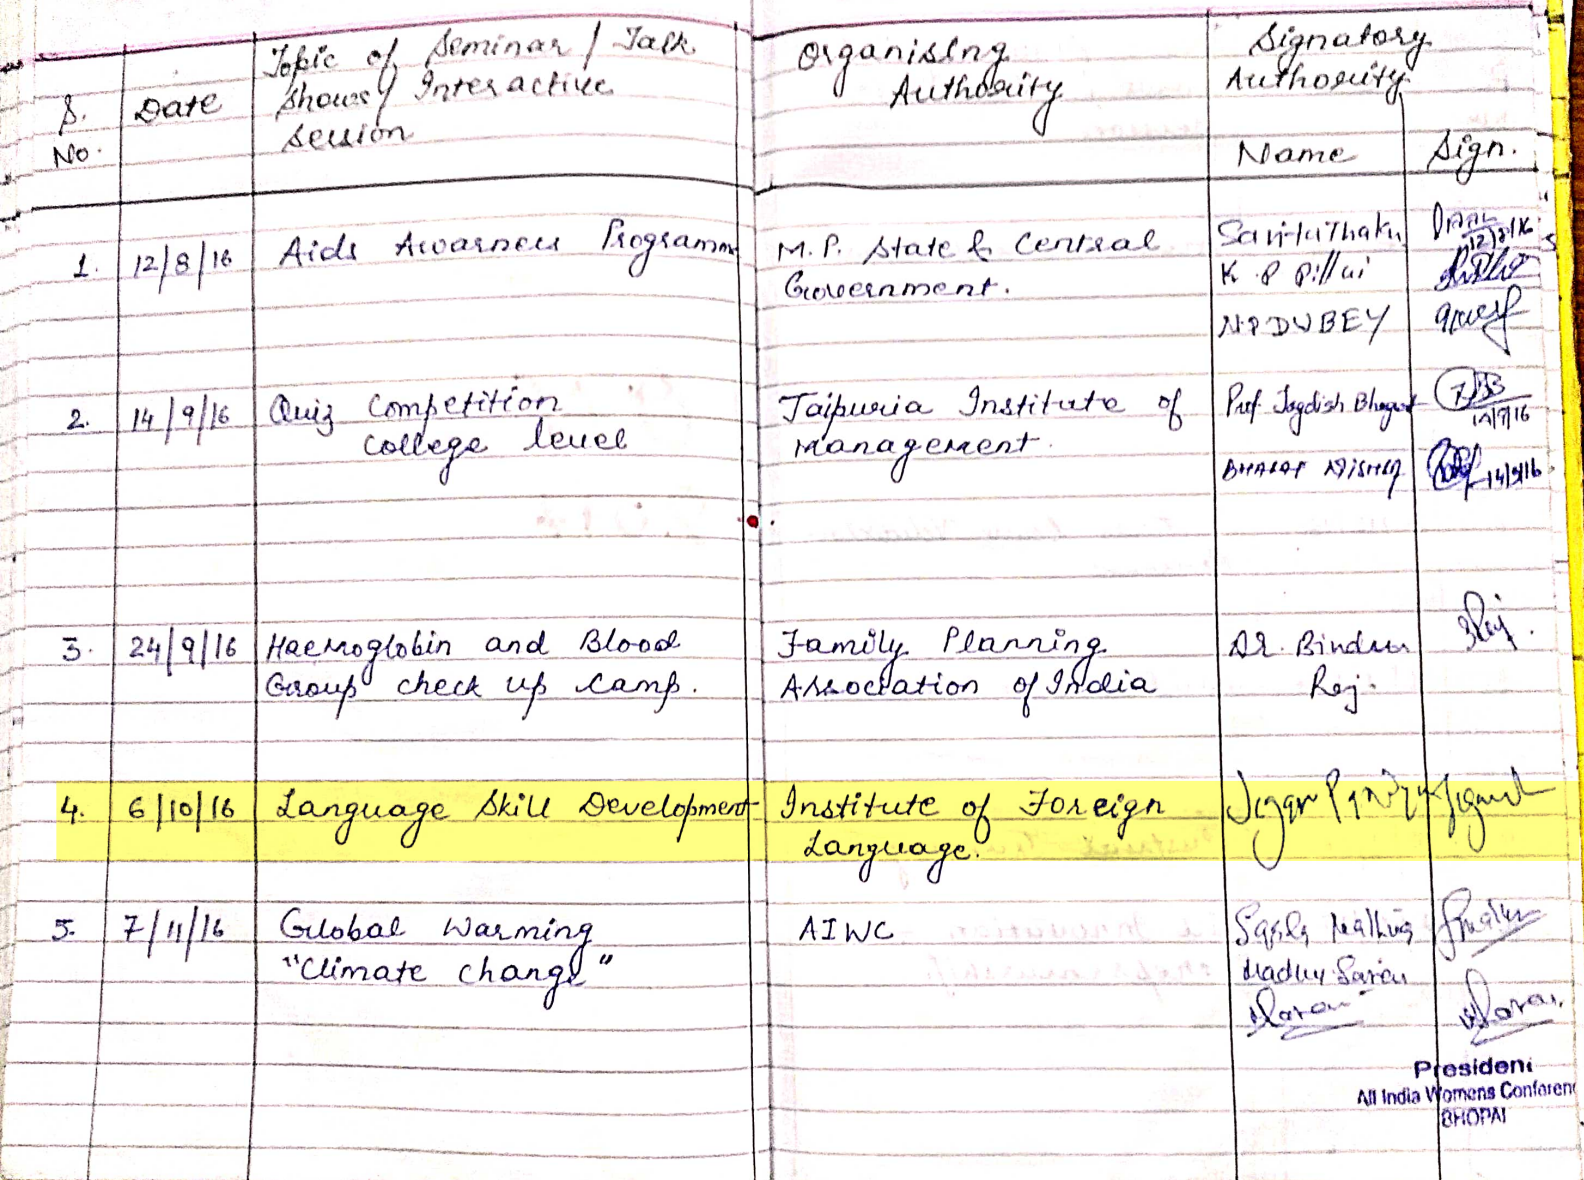 S.
No.
Date
Topic of Seminar / Talk
Shows / Interactive
Session
Organising
Authority
Signatory
Authority
Name
Sign.
1.
12/8/16
Aids Awarness Programm
M.P. State & Central
Government.
K P Pillai
N.P DUBEY
12/8/16
2.
14/9/16
Quiz Competition
College level
Jaipuria Institute of
Management.
Prof. Jagdish Bhagwat
14/9/16
3.
24/9/16
Haemoglobin and Blood
Group check up camp.
Family Planning
Association of India
Dr. Bindu
Raj.
4.
6/10/16
Language Skill Development
Institute of Foreign
Language.
5.
7/11/16
Global Warming
"Climate change"
AIWC
President
All India Womens Conferenc
BHOPAL